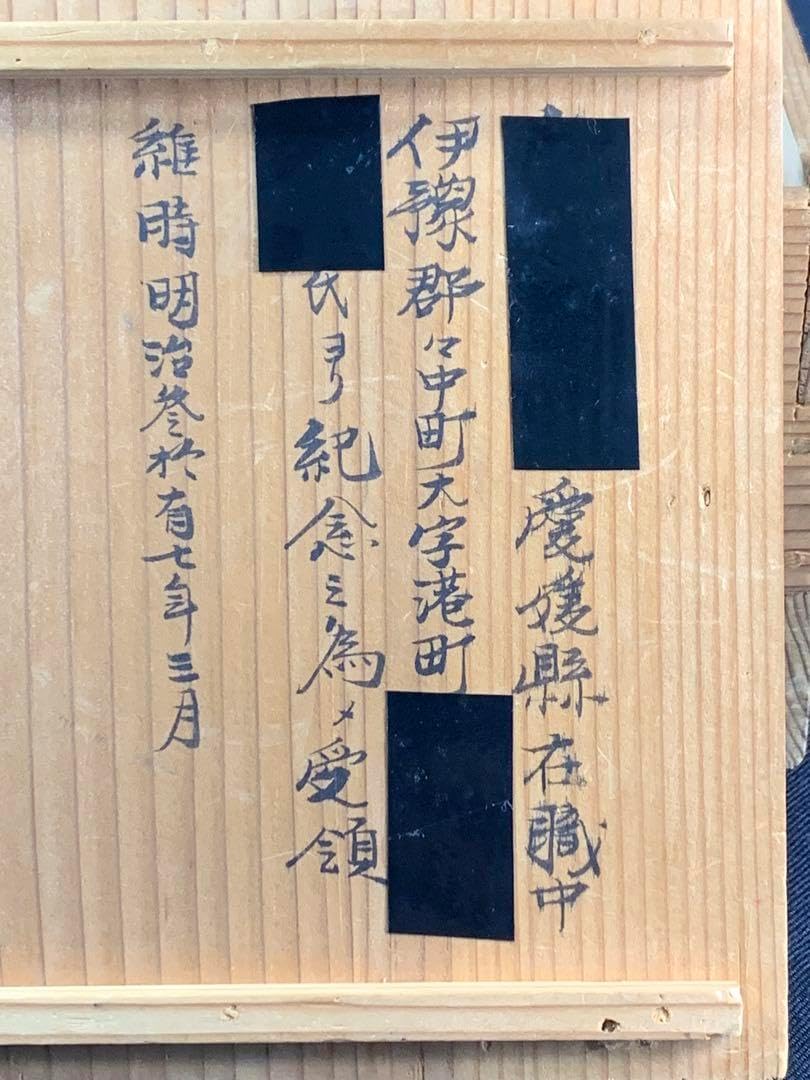 愛媛縣在職中
伊豫郡郡中町大字港町
氏ヨリ紀念ミ為メ受領
維時明治参拾有七年三月